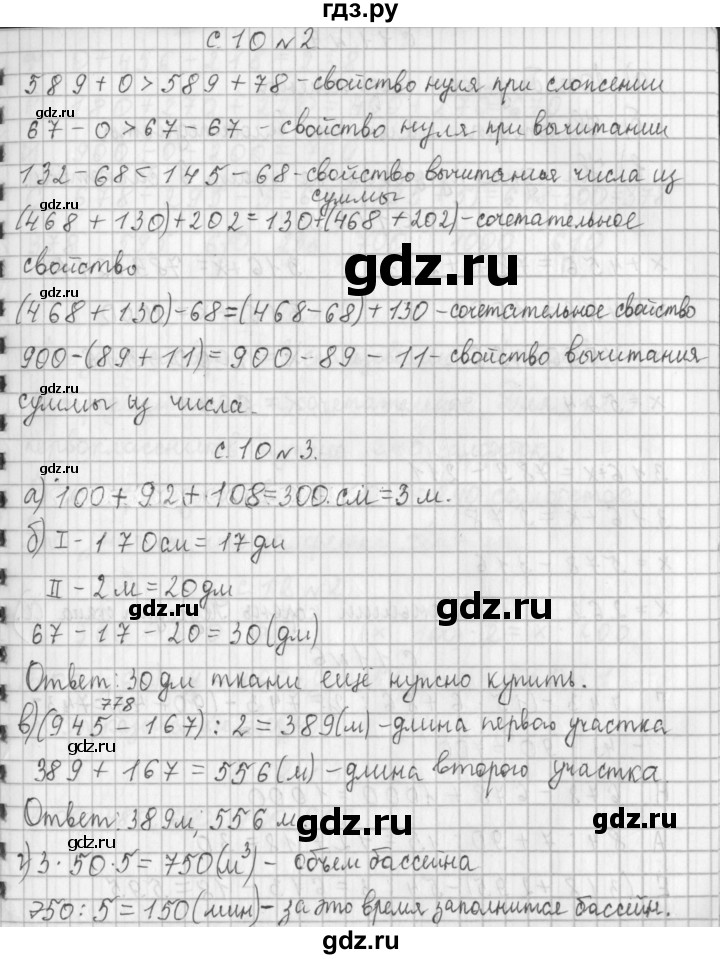 гдз.ру
с. 10 №2
589+0>589+78 - свойство нуля при сложении
gdz.ru
67-0>67-67 - свойство нуля при вычитании
132-68<145-68 - свойство вычитания числа из
суммы
gdz.ru
(468+130)+202=130+(468+202) - сочетательное
свойство
gdz.ru
gdz.ru
(468+130)-68=(468-68)+130 - сочетательное свойство
900-(89+11)=900-89-11 - свойство вычитания
gdz.ru
суммы из числа.
с. 10 №3.
gdz.ru
а) 100+92+108=300.см=3м.
б) I - 170см=17дм
gdz.ru
II - 2м=20дм
gdz.ru
67-17-20=30(дм)
gdz.ru
Ответ: 30дм ткани ещё нужно купить.
778
в) (945-167):2=389(м) - длина первого участка
gdz.ru
389+167=556(м) - длина второго участка.
Ответ: 389м; 556м
gdz.ru
gdz.ru
г) 3·50·5=750(м³) - объем бассейна
750:5=150(мин) - за это время заполнится бассейн.
gdz.ru
gdz.ru